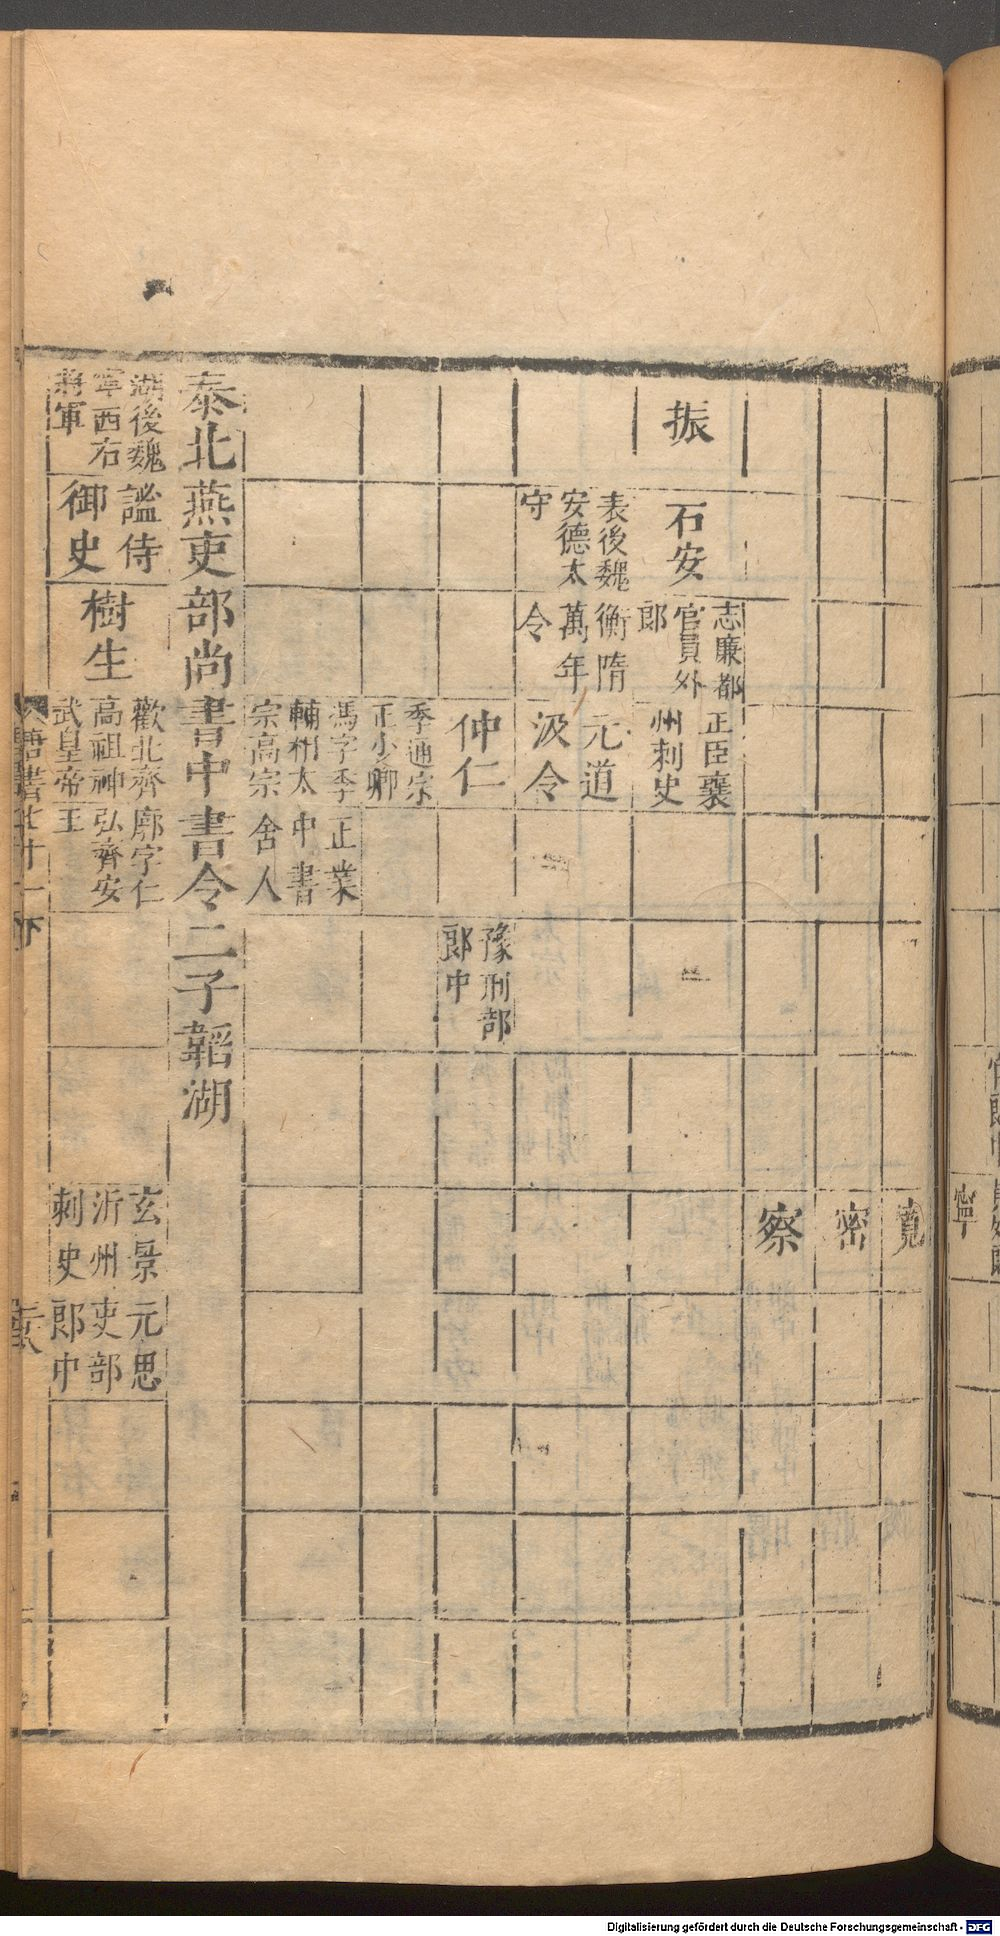 寬
密
察
振
石安
志廉都
官員外
郎
正臣襄
州刺史
表後魏
安德太
守
衡隋
萬年
令
元道
汲令
仲仁
豫刑部
郎中
季通宗
正少卿
馮字季
輔相太
宗高宗
正業
中書
舍人
泰北燕吏部尚書中書令二子韜湖
湖後魏
寧西右
將軍
謐侍
御史
樹生
歡北齊
高祖神
武皇帝
廓字仁
弘齊安
王
玄景
沂州
刺史
元思
吏部
郎中
唐書七十一下
寧
Digitalisierung gefördert durch die Deutsche Forschungsgemeinschaft - DFG